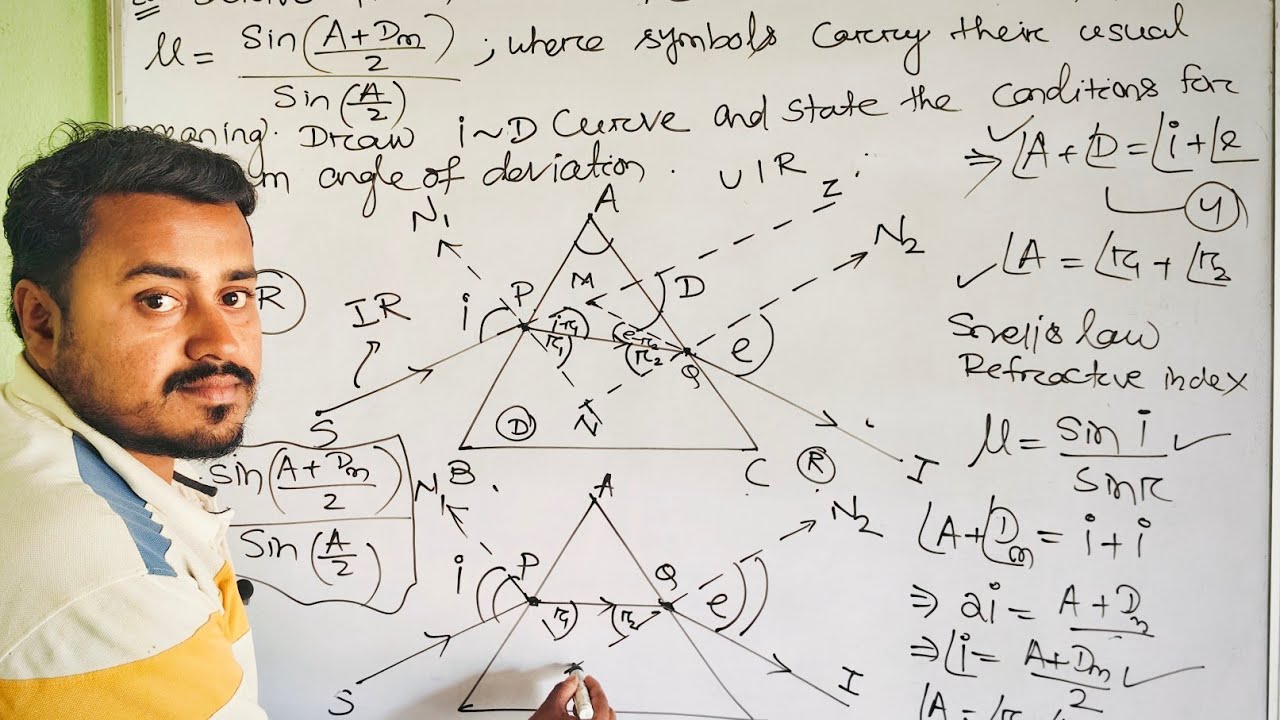 μ = Sin(A+Dm/2) / Sin(A/2) ; where symbols carry their usual
meaning. Draw i~D Curve and state the conditions for
angle of deviation. VIR
⇒ ∠A + ∠D = ∠i + ∠e
4
✓ ∠A = ∠r1 + ∠r2
Snell's law
Refractive index
μ = Sin i / Sin r ✓
∠A + ∠Dm = i + i
⇒ 2i = A + Dm
⇒ ∠i = A+Dm / 2 ✓
∠A =
A
N1
I
N2
R
IR
i
P
M
D
i-r1
r1
e-r2
r2
Q
e
N
S
D
B
C
R
I
Sin(A+Dm/2) / Sin(A/2)
A
N1
N2
i
P
Q
r1
r2
e
S
I